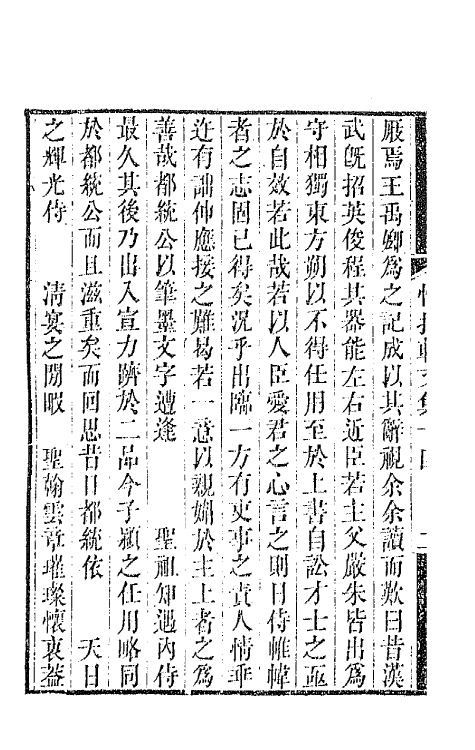 惜抱軒文集十四　二
厰焉王禹卿爲之記成以其辭視余余讀而歎曰昔漢
武旣招英俊程其器能左右近臣若主父嚴朱皆出爲
守相獨東方朔以不得任用至於上書自訟才士之亟
於自效若此哉若以人臣愛君之心言之則日侍帷幄
者之志固已得矣况乎出臨一方有吏事之責人情乖
迕有詘伸應接之難曷若一意以親媚於主上者之爲
善哉都統公以筆墨文字遭逢　聖祖知遇內侍
最久其後乃出入宣力躋於二品今子潁之任用略同
於都統公而且滋重矣而回思昔日都統依　天日
之輝光侍　清宴之閒暇　聖翰雲章璀璨懷衷蓋